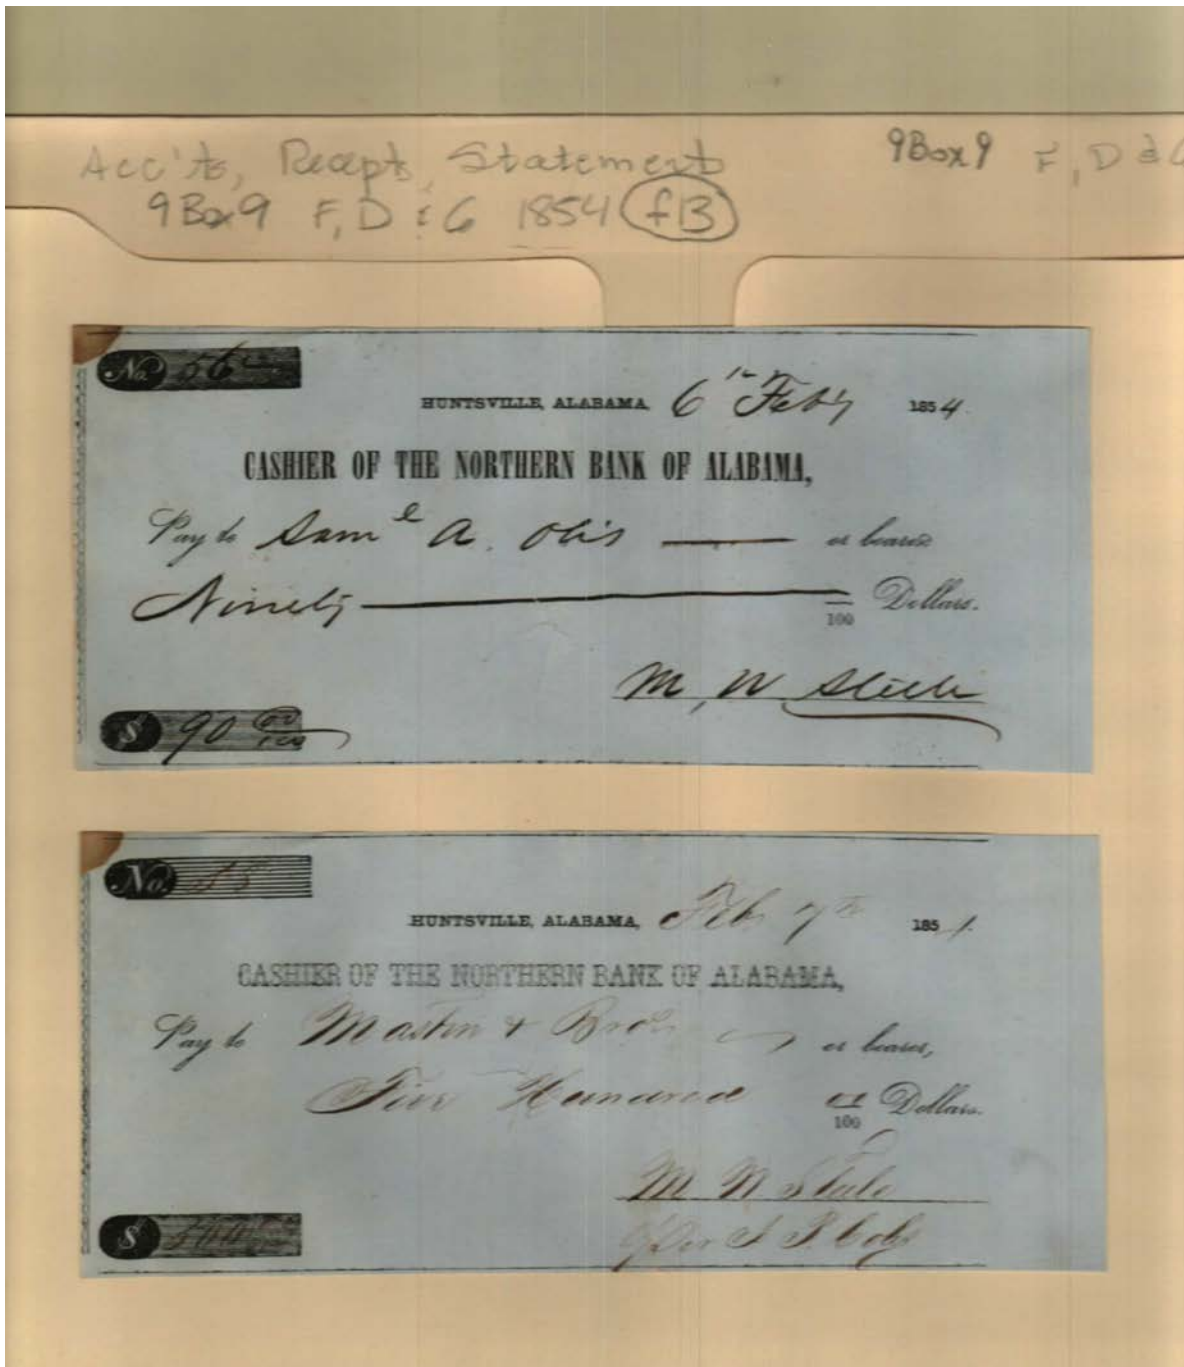 Acc'ts, Recepts, Statements
9Box9 F, D & G 1854 f13
9Box9 F, D & G
No. 56
HUNTSVILLE, ALABAMA, 6th Feby 1854.
CASHIER OF THE NORTHERN BANK OF ALABAMA,
Pay to Saml A. Otis or bearer
Ninety /100 Dollars.
M, W Steele
$ 90 00/100
No. 58
HUNTSVILLE, ALABAMA, Feb 7th 185
CASHIER OF THE NORTHERN BANK OF ALABAMA,
Pay to Mastin & Bros or bearer,
Five Hundred /100 Dollars.
M W Steele
$ 500
Per